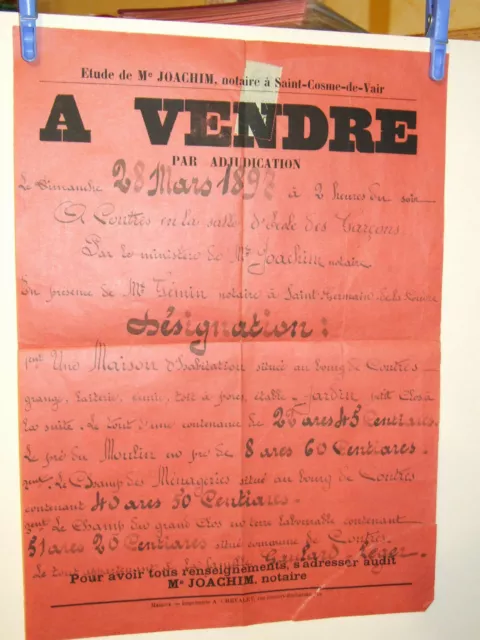 Etude de Me JOACHIM, notaire à Saint-Cosme-de-Vair
A VENDRE
PAR ADJUDICATION
Le Dimanche 28 Mars 1897 à 2 heures du soir
A Contres en la salle d'école des Garçons
Par le ministère de Me Joachim notaire
En présence de Me notaire à Saint Germain de la Coudre
Désignation :
1ent Une Maison d'habitation situé au bourg de Contres
grange, toit à porcs, étable - Jardin petit Clos à
la suite. Le tout d'une contenance de ares 45 Centiares.
Le pré du Moulin ou pré de 8 ares 60 Centiares -
Le Champ des Ménageries situé au bourg de Contres
contenant 40 ares 50 Centiares -
Le Champ du grand Clos en terre labourable contenant
51 ares 20 Centiares situé commune de Contres.
Le tout
Pour avoir tous renseignements, s'adresser audit
Me JOACHIM, notaire
Mamers. — Imprimerie A. CHEVALET,